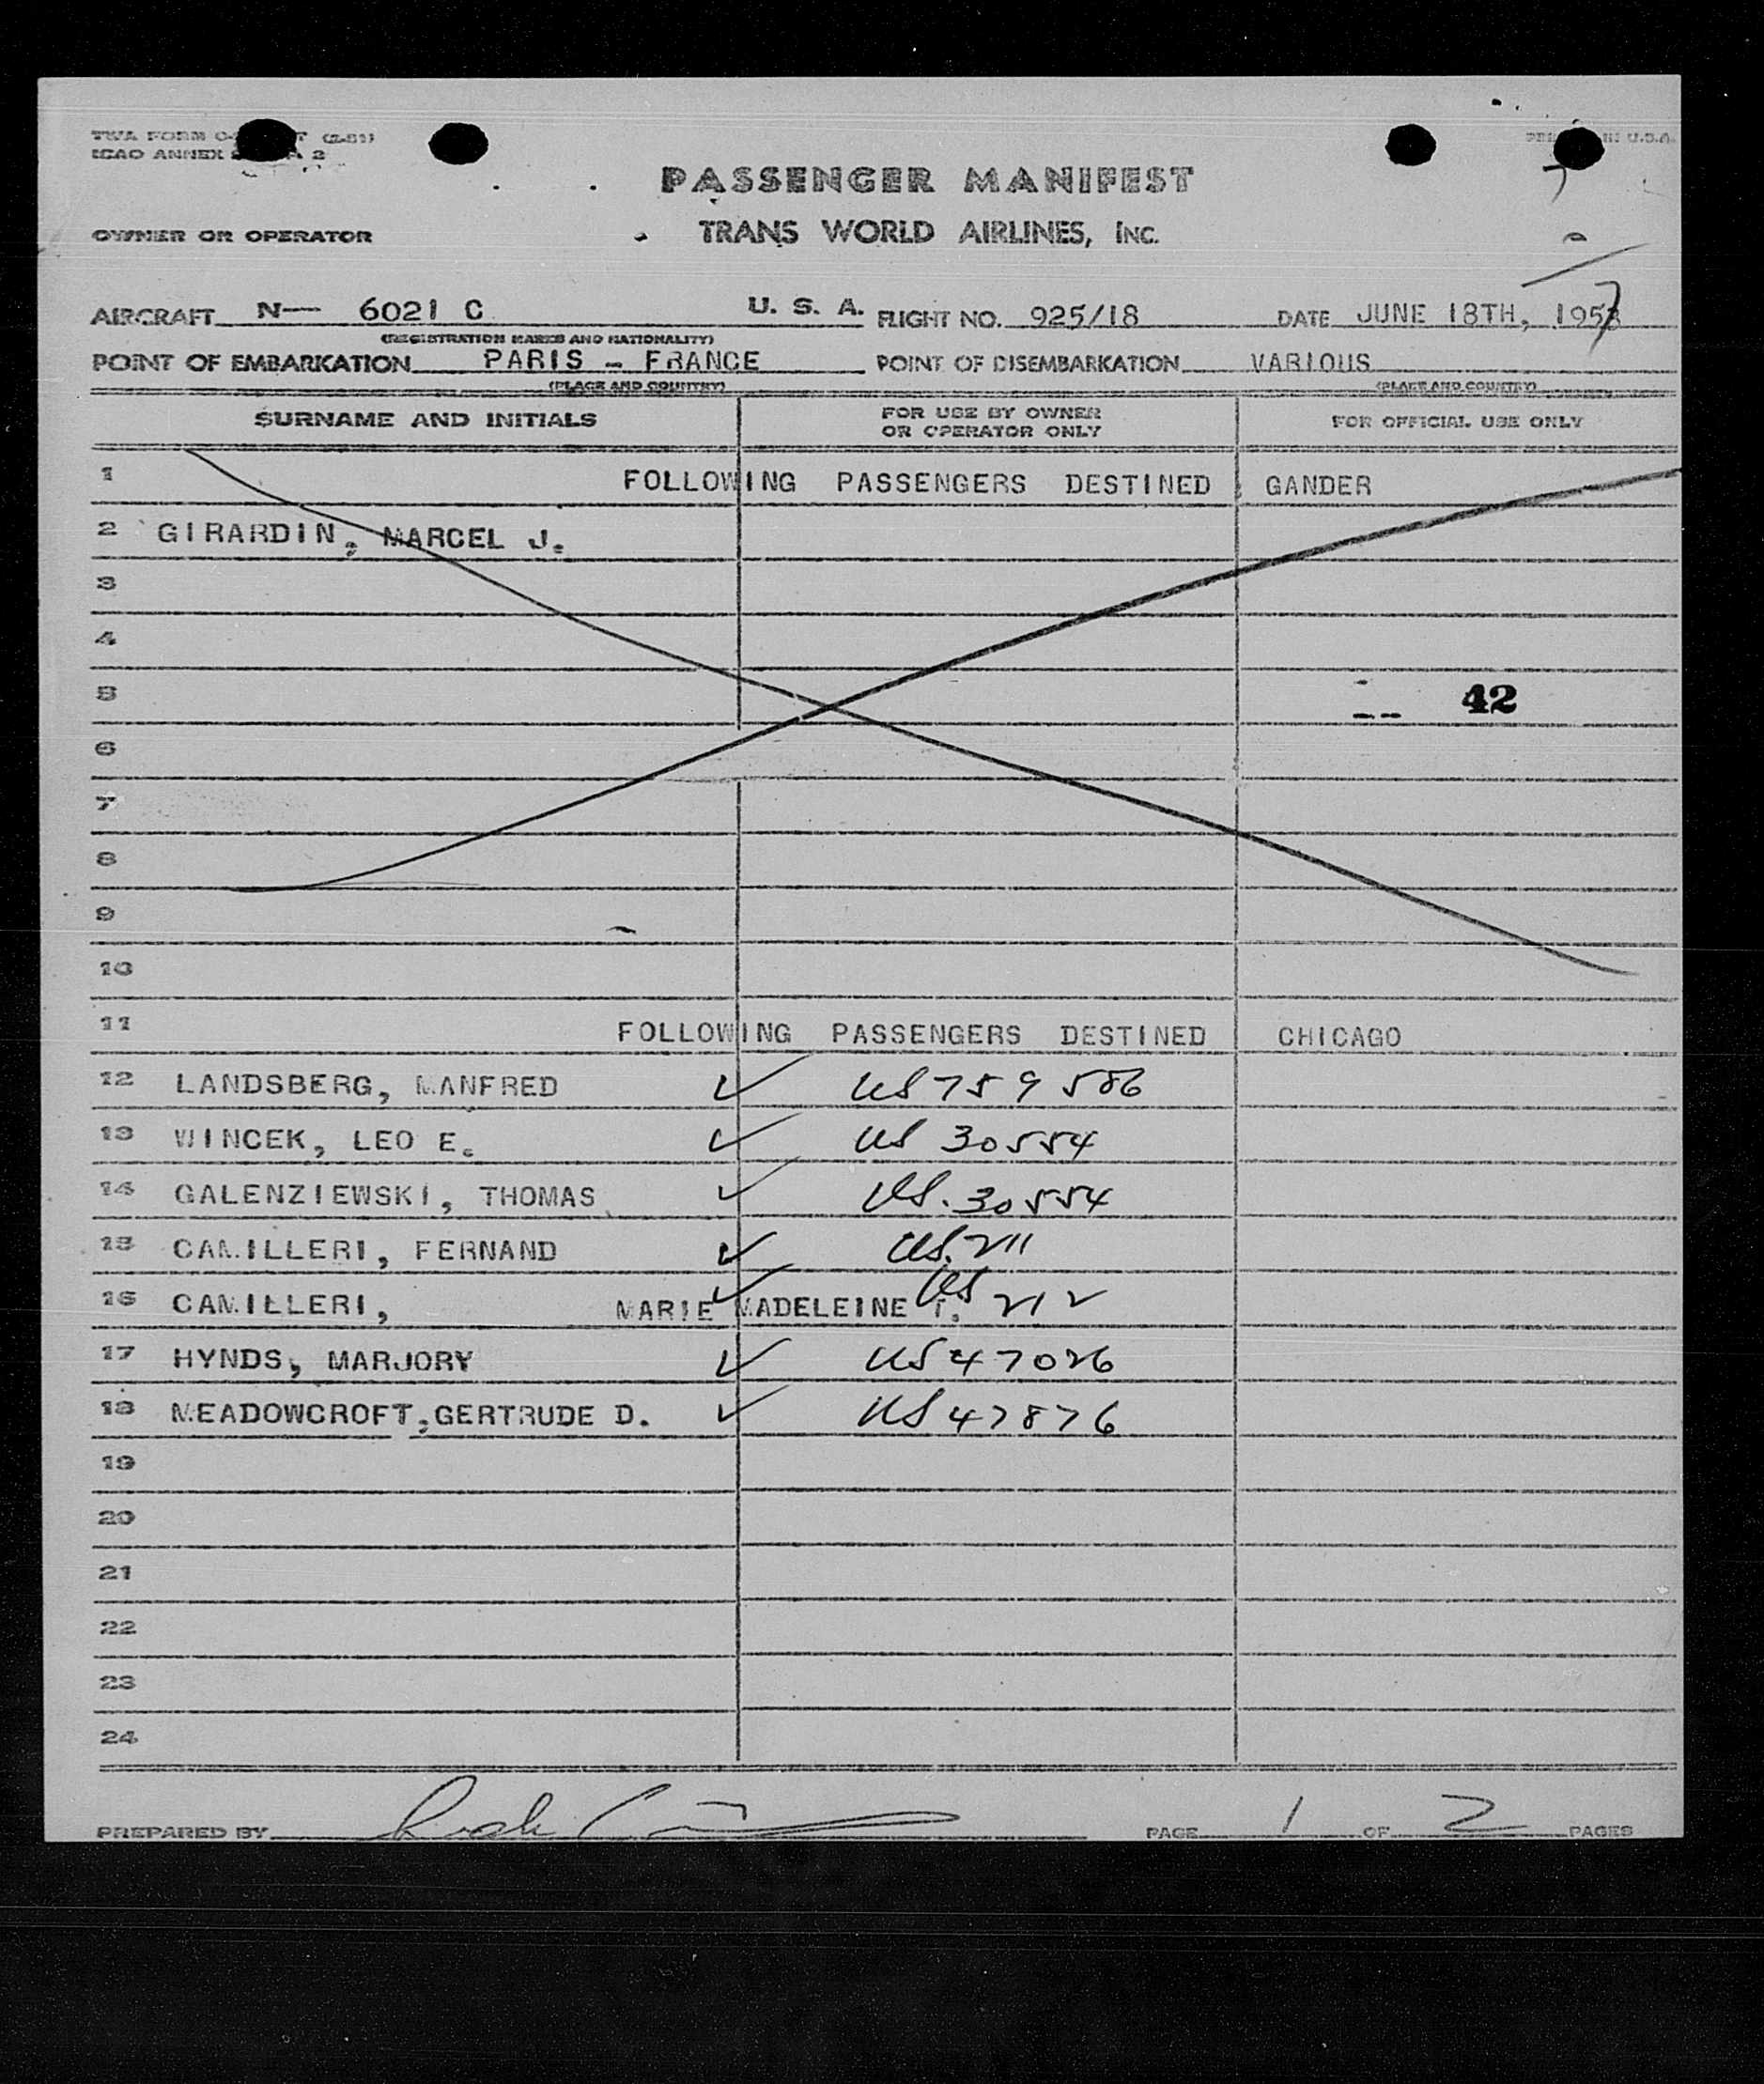 TWA FORM (2-51)
ICAO ANNEX 2
IN U.S.A.
PASSENGER MANIFEST
OWNER OR OPERATOR TRANS WORLD AIRLINES, INC.
AIRCRAFT N— 6021 C U. S. A. FLIGHT NO. 925/18 DATE JUNE 18TH, 195
(REGISTRATION MARKS AND NATIONALITY)
POINT OF EMBARKATION PARIS - FRANCE POINT OF DISEMBARKATION VARIOUS
(PLACE AND COUNTRY) (PLACE AND COUNTRY)
SURNAME AND INITIALS FOR USE BY OWNER OR OPERATOR ONLY FOR OFFICIAL USE ONLY
1 FOLLOWING PASSENGERS DESTINED GANDER
2 GIRARDIN, MARCEL J.
3
4
5 42
6
7
8
9
10
11 FOLLOWING PASSENGERS DESTINED CHICAGO
12 LANDSBERG, MANFRED ✓ US 759 586
13 WINCEK, LEO E. ✓ US 30554
14 GALENZIEWSKI, THOMAS ✓ US. 30554
15 CAMILLERI, FERNAND ✓ US. 211
16 CAMILLERI, MARIE MADELEINE ✓ US 212
17 HYNDS, MARJORY ✓ US 47026
18 MEADOWCROFT, GERTRUDE D. ✓ US 47876
19
20
21
22
23
24
PREPARED BY PAGE 1 OF 2 PAGES